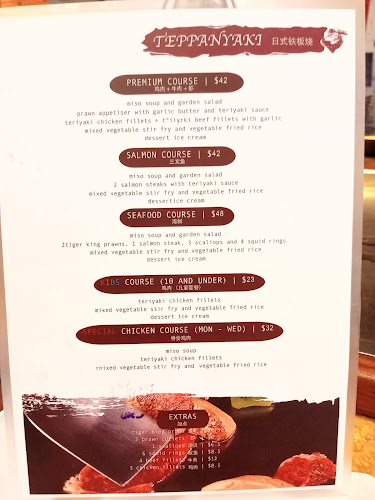 TEPPANYAKI 日式铁板烧
PREMIUM COURSE | $42
鸡肉+牛肉+虾
miso soup and garden salad
prawn appetiser with garlic butter and teriyaki sauce
teriyaki chicken fillets + t"iiyrki beef fillets with garlic
mixed vegetable stir fry and vegetable fried rice
dessert ice cream
SALMON COURSE | $42
三文鱼
miso soup and garden salad
2 salmon steaks with teriyaki sauce
mixed vegetable stir fry and vegetable fried rice
dessertice cream
SEAFOOD COURSE | $48
海鲜
miso soup and garden salad
2tiger king prawns, 1 salmon steak, 3 scallops and 4 squid rings
mixed vegetable stir fry and vegetable fried rice
dessert ice cream
KIDS COURSE (10 AND UNDER) | $23
鸡肉 (儿童套餐)
teriyaki chicken fillets
mixed vegetable stir fry and vegetable fried rice
dessert ice cream
SPECIAL CHICKEN COURSE (MON - WED) | $32
特价鸡肉
miso soup
teriyaki chicken fillets
rnixed vegetable stir fry and vegetable fried rice
EXTRAS
加点
tiger king prawn
2 prawn cutlets
3 scallops | $6.5
6 squid rings | $8.5
4 beef fillets 牛肉 | $12
5 chicken fillets 鸡肉 | $8.5